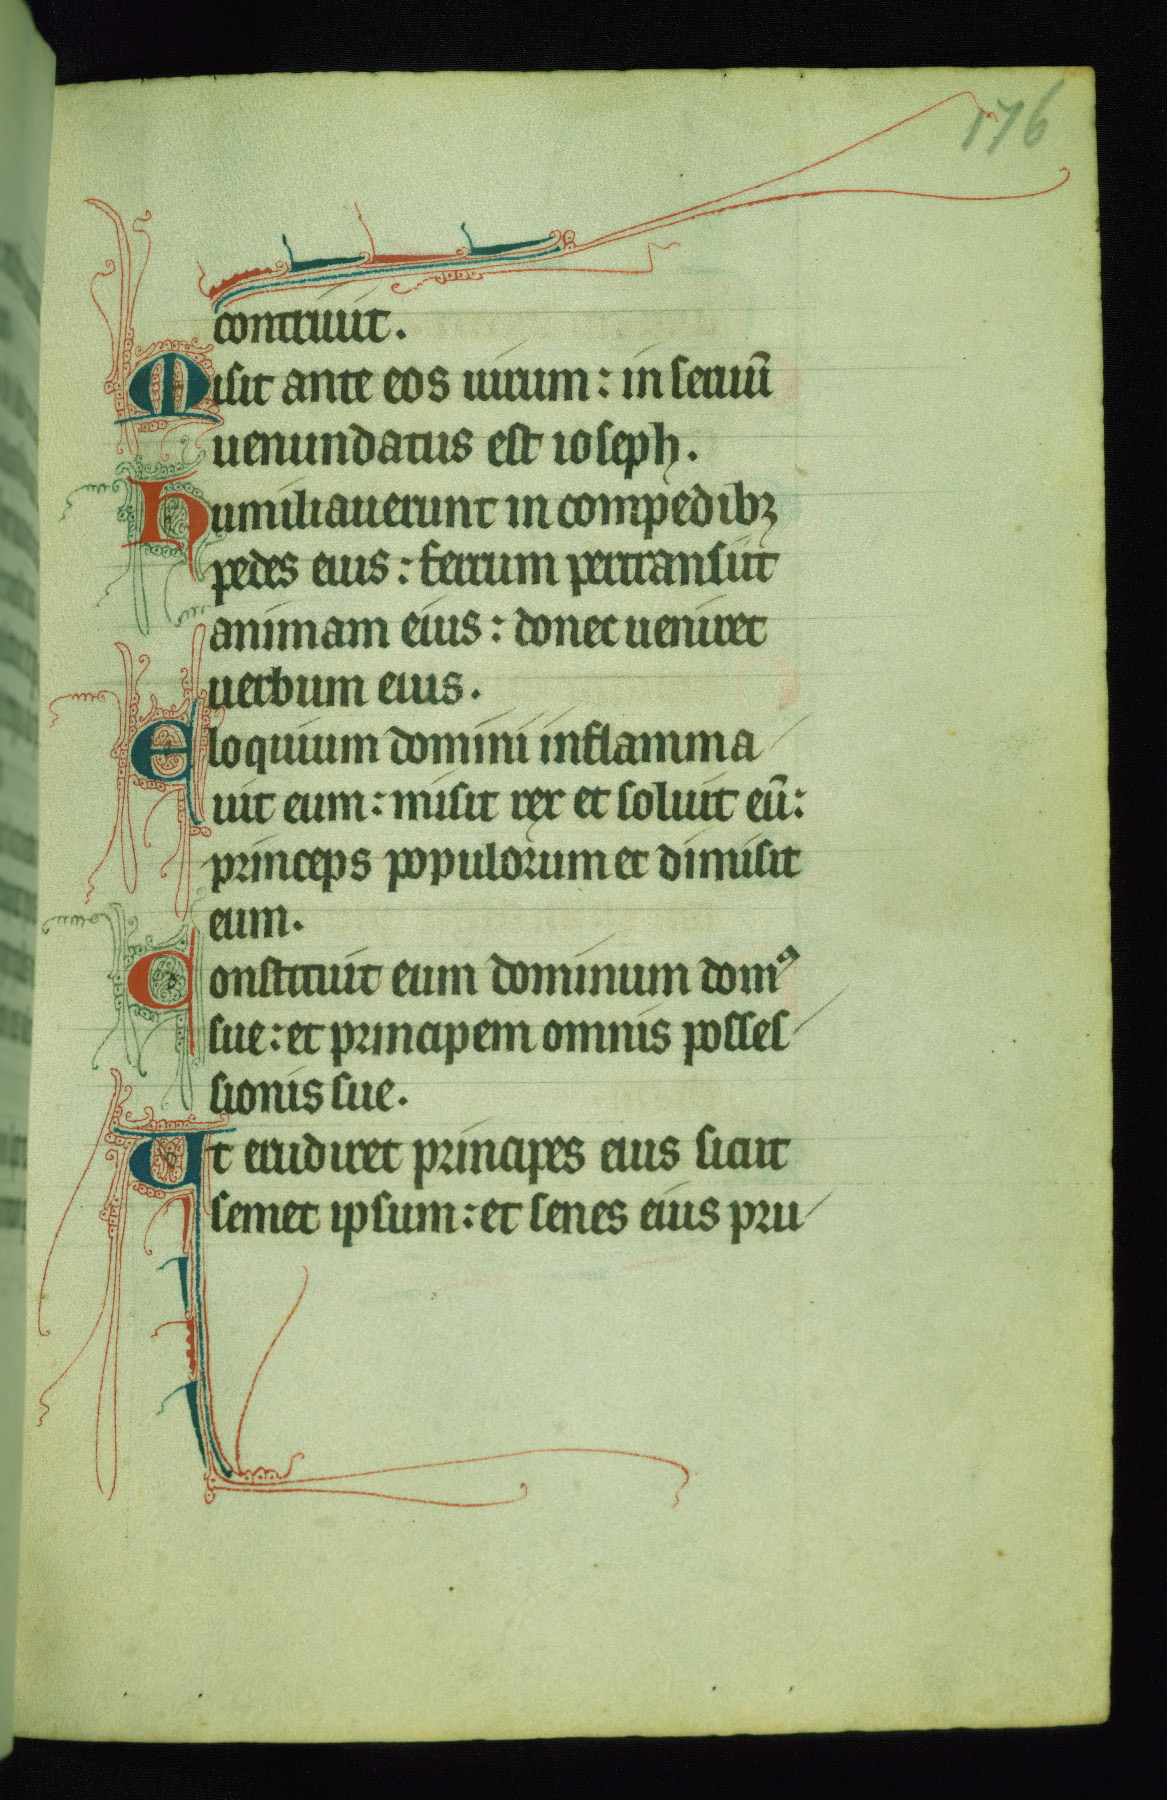 176
contriuit.
Misit ante eos uirum: in seruũ
uenundatus est ioseph.
Humiliauerunt in compedibꝫ
pedes eius: ferrum pertransiit
animam eius: donec ueniret
uerbum eius.
Eloquium domini inflamma
uit eum: misit rex et soluit eũ:
princeps populorum et dimisit
eum.
Constituit eum dominum domꝰ
sue: et principem omnis posses
sionis sue.
Ut erudiret principes eius sicut
semet ipsum: et senes eius pru